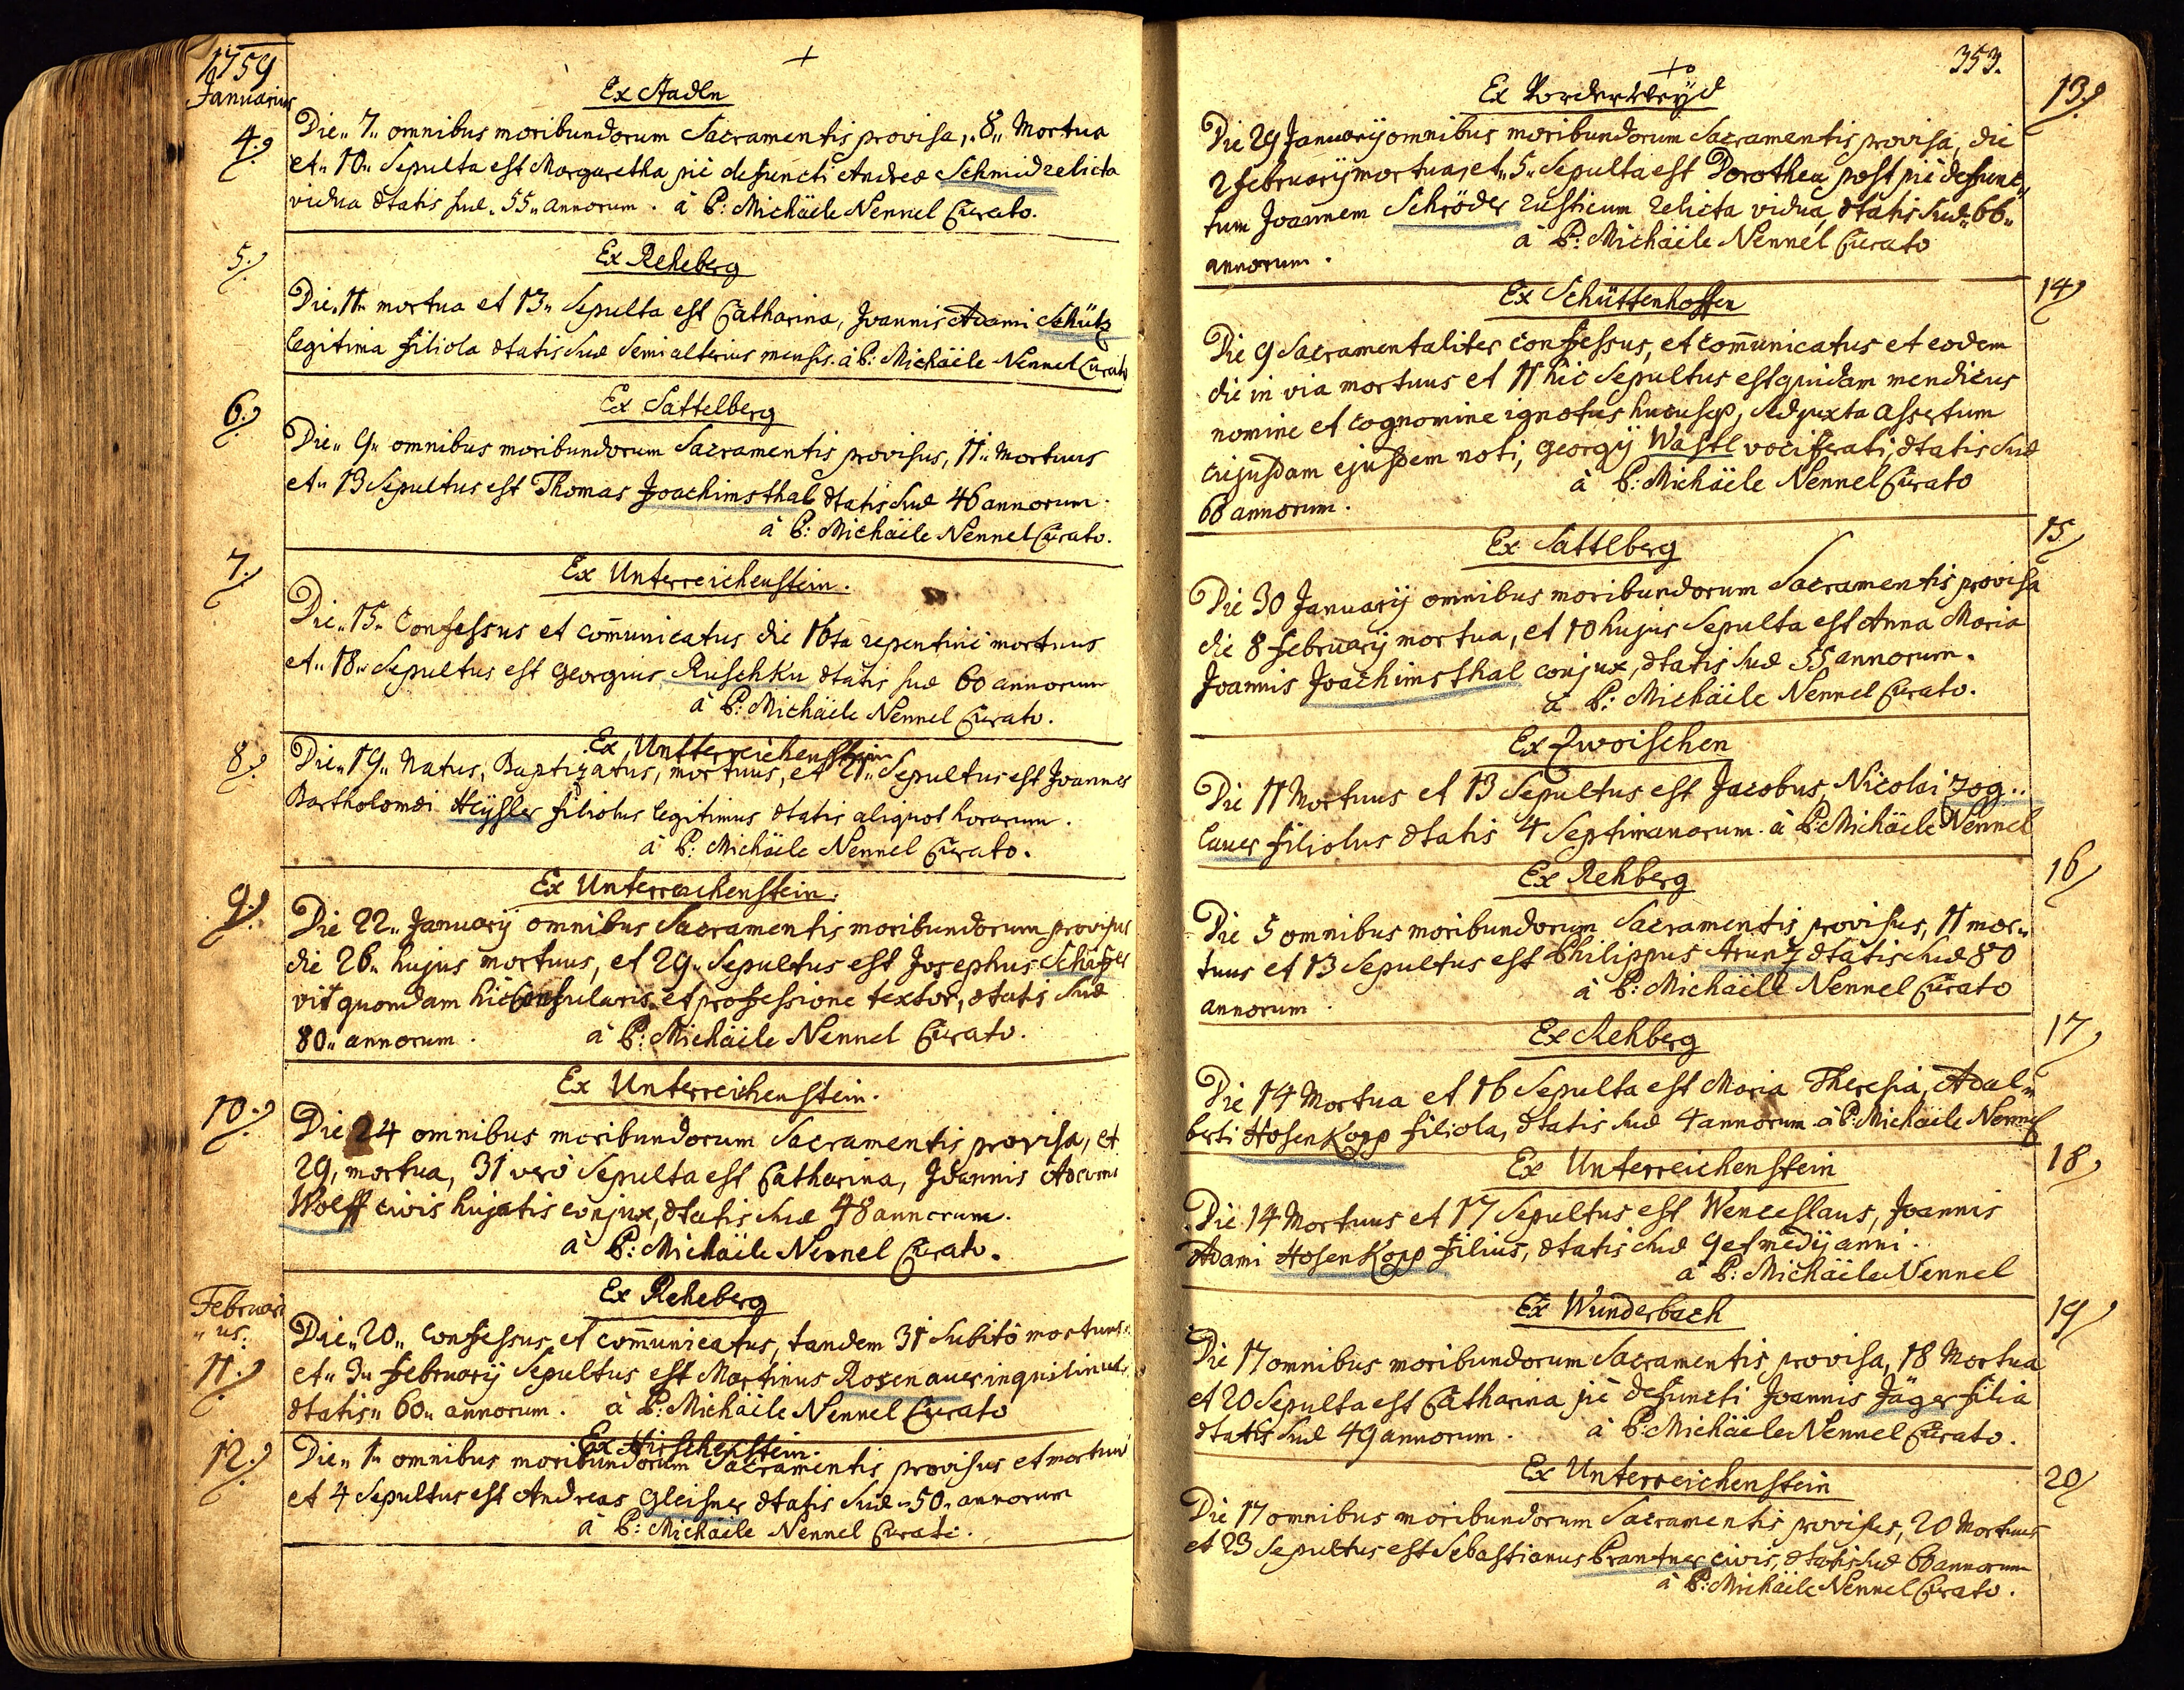 1759
Januarius
+
Ex Stadln
4.
Die„ 7„ omnibus moribundorum Sacramentis provisa, „8„ Mortua
et„ 10„ Sepulta est Margaretha piè defuncti Andreæ Schmid relicta
vidua ætatis suæ„ 55„ annorum. à P: Michäele Nennel Curato.
Ex Reheberg
5.
Die„ 11„ mortua et 13„ Sepulta est Catharina, Joannis Adami Schütz
legitima filiola ætatis suæ semi alterius mensis. à P: Michäele Nennel Curato
Ex Sattelberg
6.
Die„ 9„ omnibus moribundorum Sacramentis provisus, 11„ Mortuus
et„ 13 Sepultus est Thomas Joachimsthal ætatis suæ 46 annorum.
à P: Michäele Nennel Curato.
Ex Unterreichenstein.
7.
Die„ 15„ Confessus et com̄unicatus die 16ta repentinè mortuus
et„ 18„ Sepultus est Georgius Ruschku ætatis suæ 60 annorum
à P: Michäele Nennel Curato.
Ex Untterreichenstein
8.
Die„ 19„ Natus, Baptizatus, mortuus, et 21„ Sepultus est Joannes
Bartholomæi Heÿsler filiolus legitimus ætatis aliquot horarum.
à P: Michäele Nennel Curato.
Ex Unterreichenstein.
9.
Die 22„ Januarÿ omnibus Sacramentis moribundorum provisus
die 26„ hujus mortuus, et 29„ Sepultus est Josephus Schäffer
vir quondam hic Consularis et professione textor, ætatis suæ
80„ annorum. à P: Michäele Nennel Curato.
Ex Unterreichenstein.
10.
Die 24 omnibus moribundorum Sacramentis provisa, et
29, mortua, 31 verò Sepulta est Catharina, Joannis Adami
Wolff civis hujatis conjux, ætatis suæ 48 annorum.
à P: Michäele Nennel Curato.
Ex Reheberg
Februari
„us.
11.
Die„ 20„ Confessus et com̄unicatus, tandem 31 subitò mortuus
et„ 3„ Februarÿ Sepultus est Martinus Rosenauer inquilinus
ætatis„ 60„ annorum. à P: Michäele Nennel Curato
Ex Hirschenstein.
12.
Die„ 1„ omnibus moribundorum Sacramentis provisus et mortuus
et 4 Sepultus est Andreas Gleisner ætatis suæ „50„ annorum
à P: Michäele Nennel Curato.
353.
+
Ex Vorderweÿd
13.
Die 29 Januarÿ omnibus moribundorum Sacramentis provisa, die
2 Februarÿ mortua, et„ 5„ Sepulta est Dorothea post piè defunc„
tum Joannem Schröder rusticum relicta vidua, ætatis suæ„ 66„
annorum. à P: Michäele Nennel Curato
Ex Schüttenhoffen
14
Die 9 Sacramentaliter confessus, et com̄unicatus et eodem
die in via mortuus et 11 hic Sepultus est quidam mendicus
nomine et cognomine ignotus hucusq, sed juxta assertum
cujusdam ejusdem noti, Georgÿ Wastl vociferati, ætatis suæ
60 annorum. à P: Michäele Nennel Curato
Ex Sattlberg
15
Die 30 Januarÿ omnibus moribundorum Sacramentis provisa
die 8 Februarÿ mortua, et 10 hujus Sepulta est Anna Maria
Joannis Joachimsthal conjux, ætatis suæ 55 annorum.
à P: Michäele Nennel Curato.
Ex Zwoischen
Die 11 Mortuus et 13 Sepultus est Jacobus, Nicolai Zog..
lauer filiolus ætatis 4 Septimanarum. à P: Michäele Nennel
Ex Rehberg
16
Die 5 omnibus moribundorum Sacramentis provisus, 11 mor„
tuus et 13 Sepultus est Philippus Arunz ætatis suæ 80
annorum. à P: Michäele Nennel Curato
Ex Rehberg
17
Die 14 Mortua et 16 Sepulta est Maria Theresia, Adal„
berti HosenKopp filiola, ætatis suæ 4 annorum à P: Michäele Nennel
Ex Unterreichenstein
18
Die 14 Mortuus et 17 Sepultus est Wenceslaus, Joannis
Adami HosenKopp filius, ætatis suæ 9 et medÿ anni.
à P: Michäele Nennel
Ex Wunderbach
19
Die 17 omnibus moribundorum Sacramentis provisa, 18 Mortua
et 20 Sepulta est Catharina piè defuncti Joannis Jäger filia
ætatis suæ 49 annorum. à P: Michäele Nennel Curato.
Ex Unterreichenstein
20
Die 17 omnibus moribundorum Sacramentis provisus, 20 Mortuus
et 23 Sepultus est Sebastianus Prantner civis, ætatis suæ 60 annorum
à P: Michäele Nennel Curato.